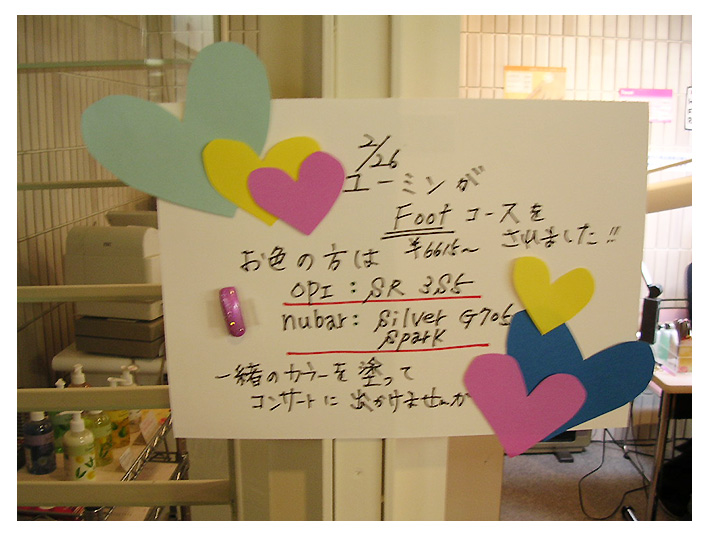 2/26
ユーミンが
Foot コースを
¥6615～ されました!!
お色の方は
OPI : SR 3S5
nubar: Silver G706
Spark
一緒のカラーを塗って
コンサートに出かけませんか